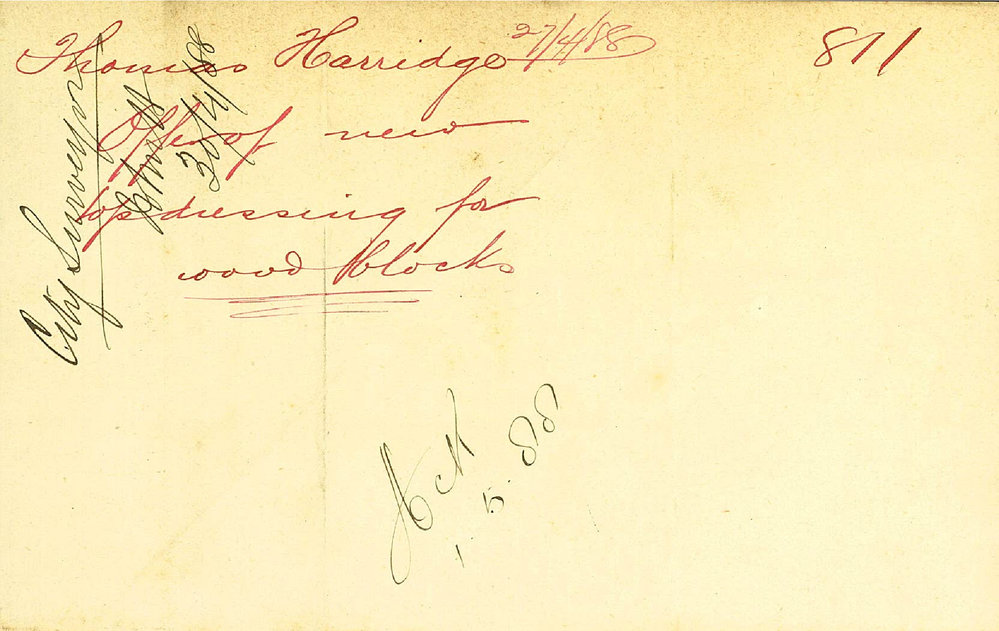 Thomas Harridge 27/4/88
811
Offer of new
topdressing for
wood blocks
City Surveyor
30/4/88
1.5.88